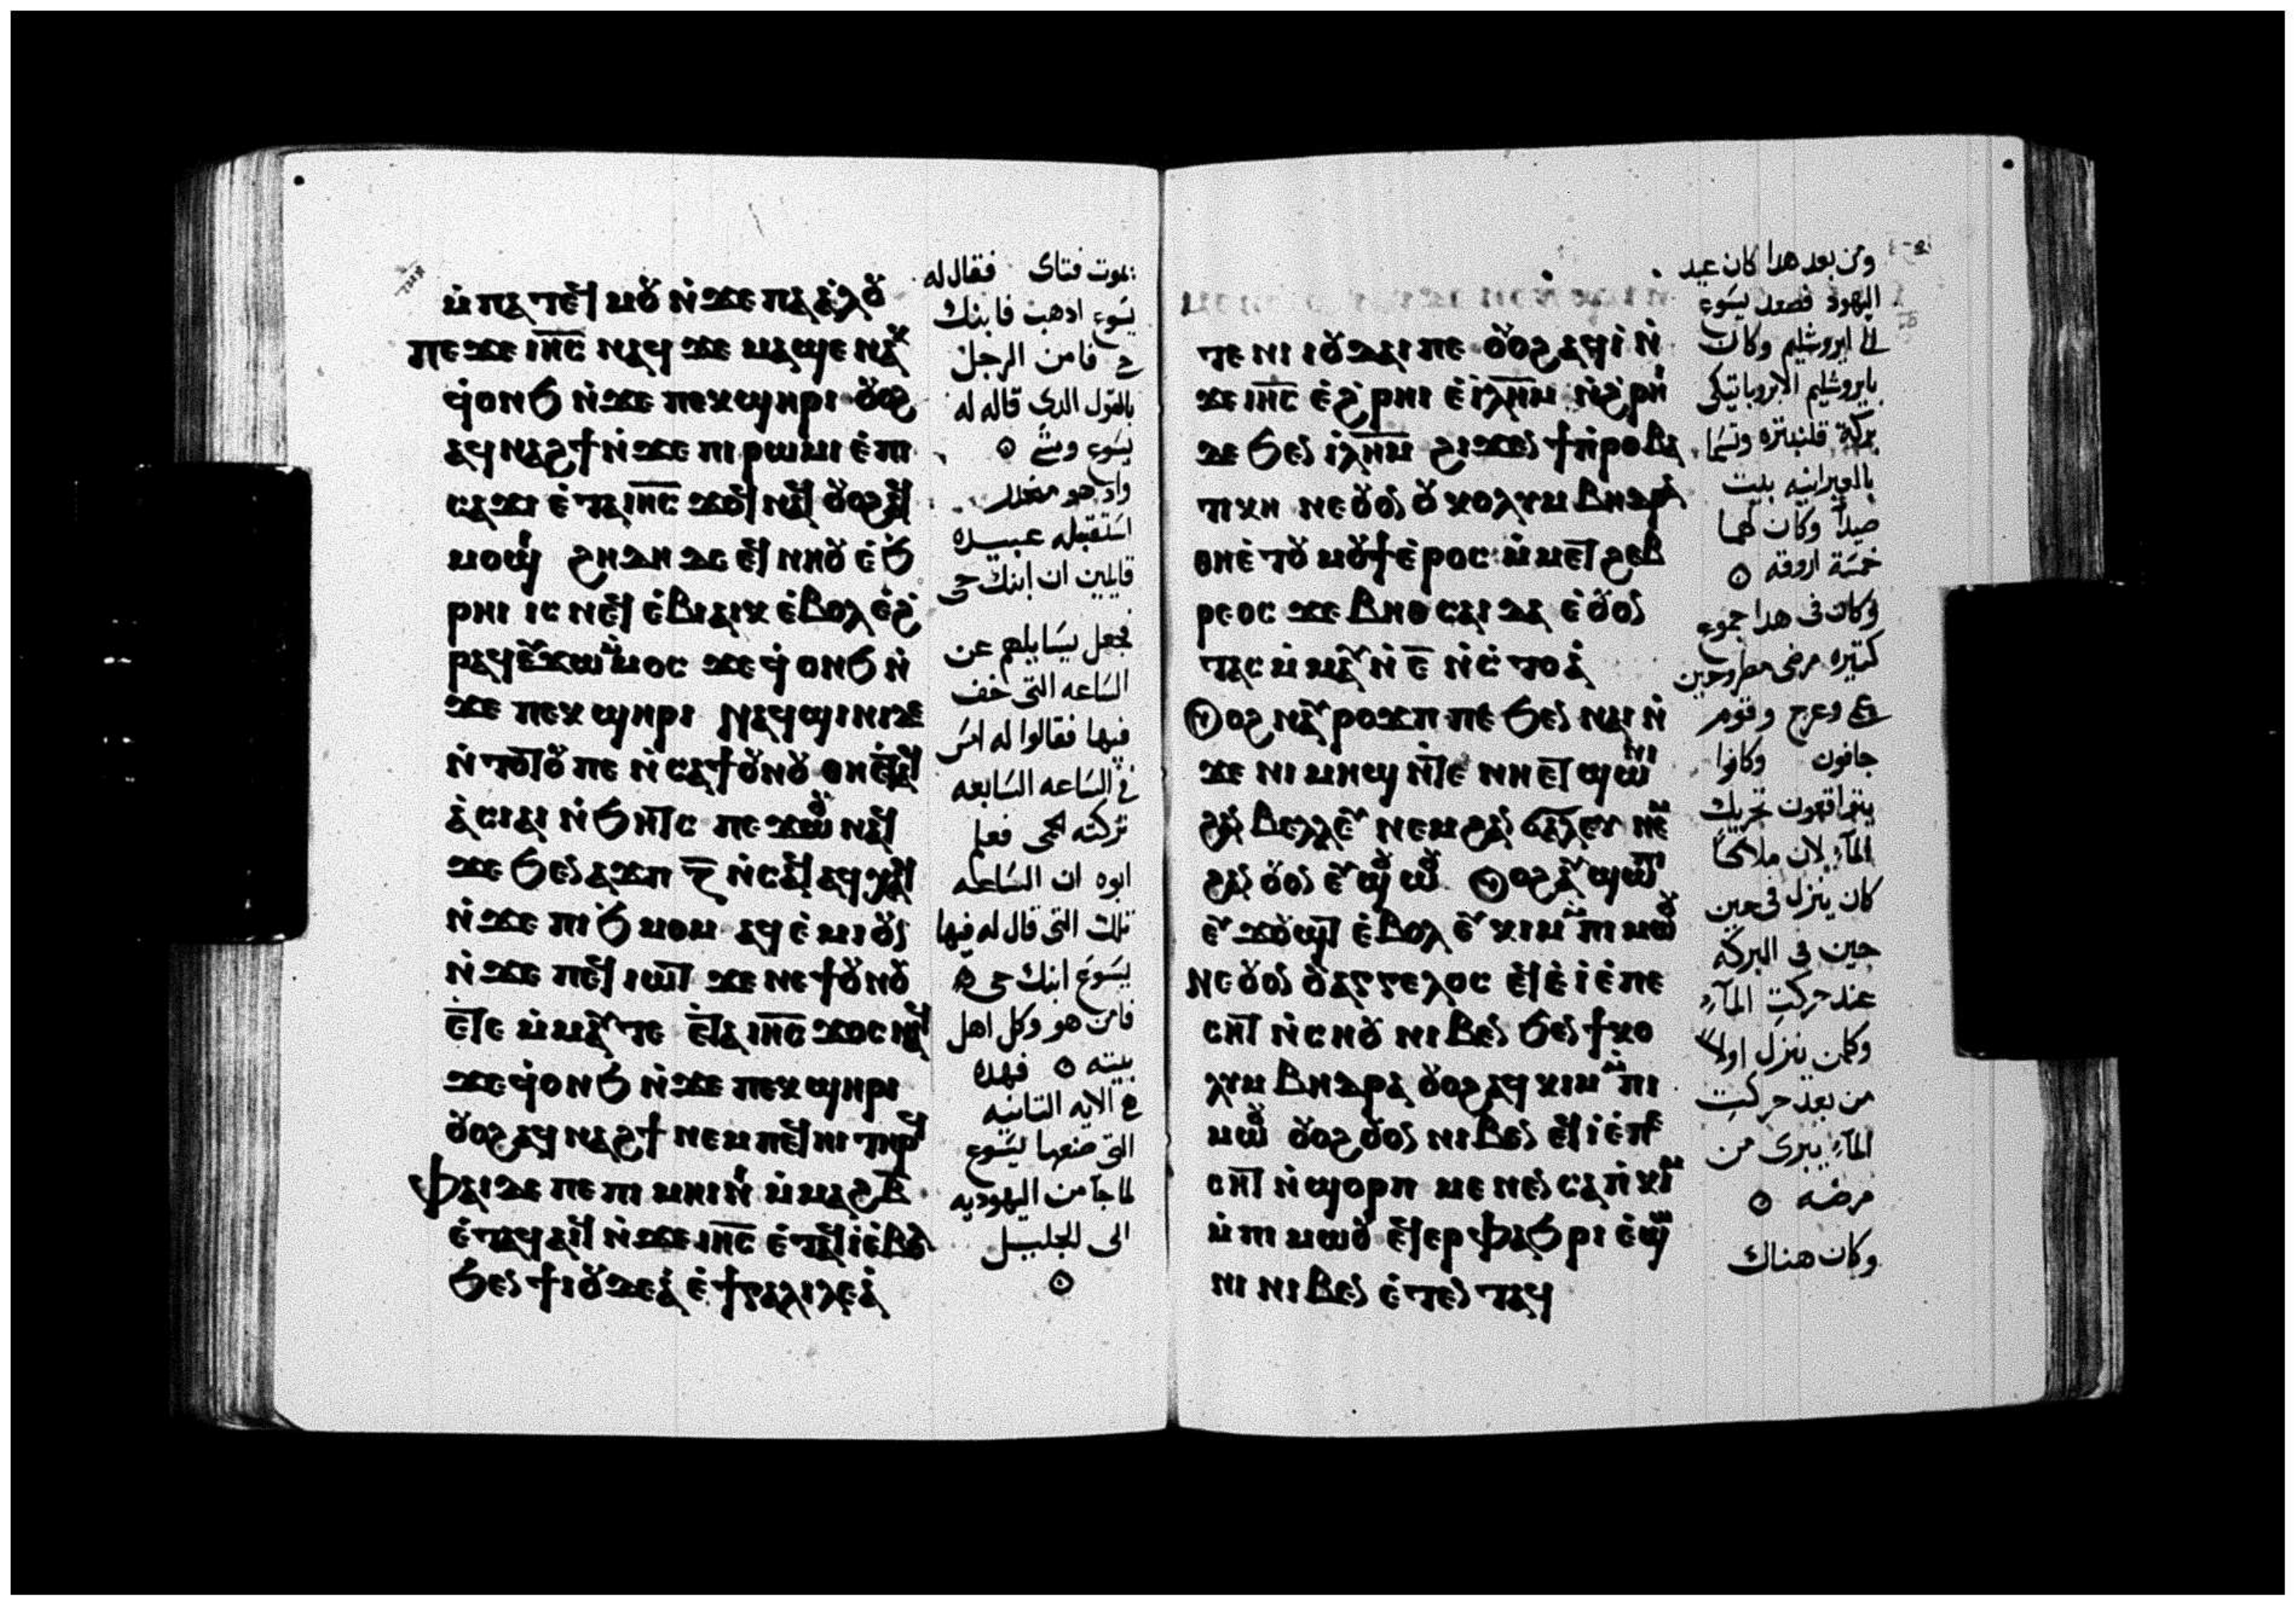 ⲙ̀ⲡⲁⲧⲉϥⲙⲟⲩ ⲛ̀ϫⲉ ⲡⲁⲁ̀ⲗⲟⲩ
ⲡⲉϫⲉ ⲓⲏ̅ⲥ̅ ⲛⲁϥ ϫⲉ ⲙⲁϣⲉ ⲛⲁⲕ
ϥ̀ⲟⲛϧ ⲛ̀ϫⲉ ⲡⲉⲕϣⲏⲣⲓ ⲟⲩⲟϩ
ⲁϥⲛⲁϩϯ ⲛ̀ϫⲉ ⲡⲓⲣⲱⲙⲓ ⲉ̀ⲡⲓ
ⲥⲁϫⲓ ⲉ̀ⲧⲁ ⲓⲏ̅ⲥ̅ ϫⲟϥ ⲛⲁϥ ⲟⲩⲟϩ ⲁϥ
ⲙⲟϣⲓ ϩⲏⲇⲏ ⲇⲉ ⲉϥⲛⲏⲟⲩ ⲉ̀ϧ
ⲣⲏⲓ ⲓⲥ ⲛⲉϥⲉ̀ⲃⲓⲁⲓⲕ ⲉ̀ⲃⲟⲗ ⲉ̀ϩ
ⲣⲁϥ ⲉⲩϫⲱ ⲙ̀ⲙⲟⲥ ϫⲉ ϥ̀ⲟⲛϧ ⲛ̀
ϫⲉ ⲡⲉⲕϣⲏⲣⲓ ⲛⲁϥϣⲓⲛⲓ ϫⲉ
ⲛ̀ⲧⲟⲧⲟⲩ ⲡⲉ ⲛ̀ⲥⲁ ϯⲟⲩⲛⲟⲩ ⲑⲏⲉ̀ⲧⲁϥ
ⲁ̀ⲥⲓⲁⲓ ⲛ̀ϧⲏⲧⲥ ⲡⲉϫⲱⲟⲩ ⲛⲁϥ
ϫⲉ ϧⲉⲛ ⲁϫⲡ ⲍ̅ ⲛ̀ⲥⲁϥ ⲁϥⲭⲁϥ
ⲛ̀ϫⲉ ⲡⲓϧⲙⲟⲙ ⲁϥⲉ̀ⲙⲓ ⲟⲩⲛ
ⲛ̀ϫⲉ ⲡⲉϥⲓⲱⲧ ϫⲉ ⲛⲉ ϯⲟⲩⲛⲟⲩ
ⲉⲧⲉ ⲙ̀ⲙⲁⲩ ⲧⲉ ⲉⲧⲁ ⲓⲏ̅ⲥ̅ ϫⲟⲥ ⲛⲁϥ
ϫⲉ ϥ̀ⲟⲛϧ ⲛ̀ϫⲉ ⲡⲉⲕϣⲏⲣⲓ
ⲟⲩⲟϩ ⲁϥⲛⲁϩϯ ⲛⲉⲙ ⲡⲉϥⲏⲓ ⲧⲏⲣϥ
ⲫⲁⲓ ⲇⲉ ⲡⲉ ⲡⲓⲙⲏⲓⲛⲓ ⲙ̀ⲙⲁϩ ⲃ̅
ⲉ̀ⲧⲁϥⲁⲓϥ ⲛ̀ϫⲉ ⲓⲏ̅ⲥ̅ ⲉ̀ⲧⲁϥⲓ̀ ⲉ̀ⲃⲟⲗ
ϧⲉⲛ ϯⲓⲟⲩⲇⲉⲁ̀ ⲉ̀ ϯⲅⲁⲗⲓⲗⲉⲁ̀
يموت فتاى فقال له
يسوع ادهب فابنك
حى فامن الرجل
بالقول الدى قاله له
يسوع ومشى
واد هو منحدر
استقبله عبيده
قايلين ان ابنك حى
فجعل يسايلهم عن
الساعه التى خف
فيها فقالوا له امس
فى الساعه السابعه
تركته الحمى فعلم
ابوه ان الساعه
تلك التى قال له فيها
يسوع ابنك حى
فامن هو وكل اهل
بيته فهده
الايه التانيه
التى صنعها يسوع
لما جا من اليهوديه
الى الجليل
ⲧⲉ ⲛⲓⲓⲟⲩⲇⲁⲓ ⲡⲉ ⲟⲩⲟϩ ⲁϥⲓ̀ ⲛ̀
ϫⲉ ⲓⲏ̅ⲥ̅ ⲉ̀ϩ̀ⲣⲏⲓ ⲉ̀ⲓ̀ⲗⲏ̅ⲙ̅ ⲛ̀ϩ̀ⲣⲏⲓ
ⲇⲉ ϧⲉⲛ ⲓⲗⲏ̅ⲙ̅ ϩⲓϫⲉⲛ ϯⲡ̀ⲣⲟⲃⲁ
ⲧⲓⲕⲏ ⲛⲉ ⲟⲩⲟⲛ ⲟⲩⲕⲟⲗⲩⲙⲃⲏⲑⲣⲁ
ⲑⲏⲉ̀ⲧⲟⲩⲙⲟⲩϯ ⲉ̀ⲣⲟⲥ ⲙ̀ⲙⲉⲧϩⲉⲃ
ⲣⲉⲟⲥ ϫⲉ ⲃⲏⲑⲥⲁⲓⲇⲁ ⲉ̀ⲟⲩⲟⲛ
ⲧⲁⲥ ⲙ̀ⲙⲁⲩ ⲛ̀ ⲉ̅ ⲛ̀ⲥ̀ⲧⲟⲁ̀
ⲟⲩⲟϩ ⲛⲁⲩⲣⲟϫⲡ ⲡⲉ ϧⲉⲛ ⲛⲁⲓ ⲛ̀
ϫⲉ ⲛⲓⲙⲏϣ ⲛ̀ⲧⲉ ⲛⲏⲉⲧϣⲱⲛⲓ
ϩⲁⲛⲃⲉⲗⲗⲉⲩ ⲛⲉⲙ ϩⲁⲛϭⲁⲗⲉⲩ ⲛⲉⲙ
ϩⲁⲛⲟⲩⲟⲛ ⲉⲩϣⲟⲩⲱⲟⲩ ⲟⲩⲟϩ ⲁⲩϣⲱⲡⲓ
ⲉⲩϫⲟⲩϣⲧ ⲉ̀ⲃⲟⲗ ⲉⲩⲕⲓⲙ ⲙ̀ⲡⲓⲙⲱⲟⲩ
ⲛⲉ ⲟⲩⲟⲛ ⲟⲩⲁⲅⲅⲉⲗⲟⲥ ⲉϥⲉ̀ⲓ̀ ⲉ̀ⲡⲉ
ⲥⲏⲧ ⲛ̀ⲥⲏⲟⲩ ⲛⲓⲃⲉⲛ ϧⲉⲛ ϯⲕⲟ
ⲗⲩⲙⲃⲏⲑⲣⲁ ⲟⲩⲟϩ ⲁϥⲕⲓⲙ ⲙ̀ⲡⲓ
ⲙⲱⲟⲩ ⲟⲩⲟϩ ⲟⲩⲟⲛ ⲛⲓⲃⲉⲛ ⲉϥⲓ̀ ⲉ̀ⲡⲉ
ⲥⲏⲧ ⲛ̀ϣⲟⲣⲡ ⲙⲉⲛⲉⲛⲥⲁ ⲡ̀ⲕⲓⲙ
ⲙ̀ⲡⲓⲙⲱⲟⲩ ⲉϥⲉⲣⲫⲁϧⲣⲓ ⲉ̀ϣⲱ
ⲛⲓ ⲛⲓⲃⲉⲛ ⲉ̀ⲧⲉⲛⲧⲁϥ
ومن بعد هدا كان عيد
اليهود فصعد يسوع
الى ايروشليم وكان
بايروشليم الابروباتيكى
بركة وتسما
بالعبرانيه بيت
صيدا وكان لها
خمسة اروقه
وكان فى هدا جموع
كتيره مرضى مطروحين
عمى وعرج وقوم
جافون وكانوا
يتوقعون تحريك
المآء لان ملاكا
كان ينزل فى حين
حين فى البركه
عند حركت المآء
وكلمن ينزل اولا
من بعد حركت
المآء يبرى من
مرضه
وكان هناك